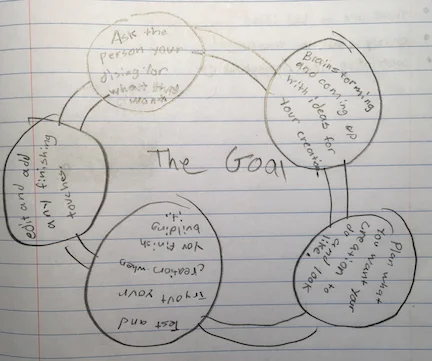 Ask the
person your
dising for
what they
want.
Brainstorming
and coming up
with ideas for
your creation
The Goal
Plan what
you want your
creation to
do and look
like.
Test and
Tryout your
creation when
you finish
building
it.
edit and add
any finishing
touches.